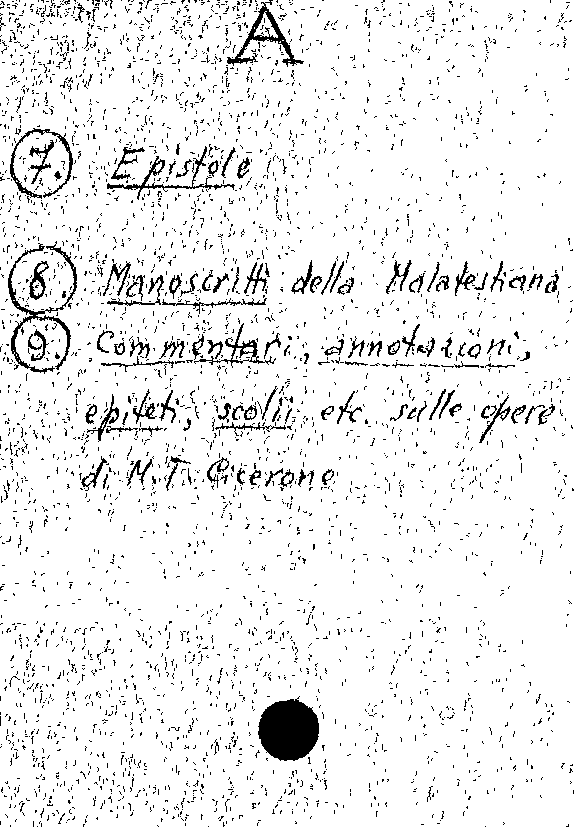 A
7. Epistole
8. Manoscritti della Malatestiana
9. Commentari, annotazioni,
epiteti, scolii etc. sulle opere
di M. T. Cicerone